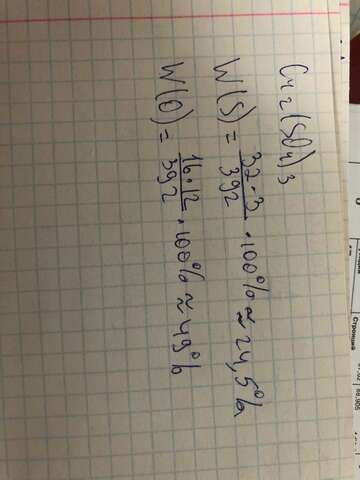 Cr₂(SO₄)₃
W(S) = 32·3/392 · 100% ≈ 24,5%
W(O) = 16·12/392 · 100% ≈ 49%
Страница